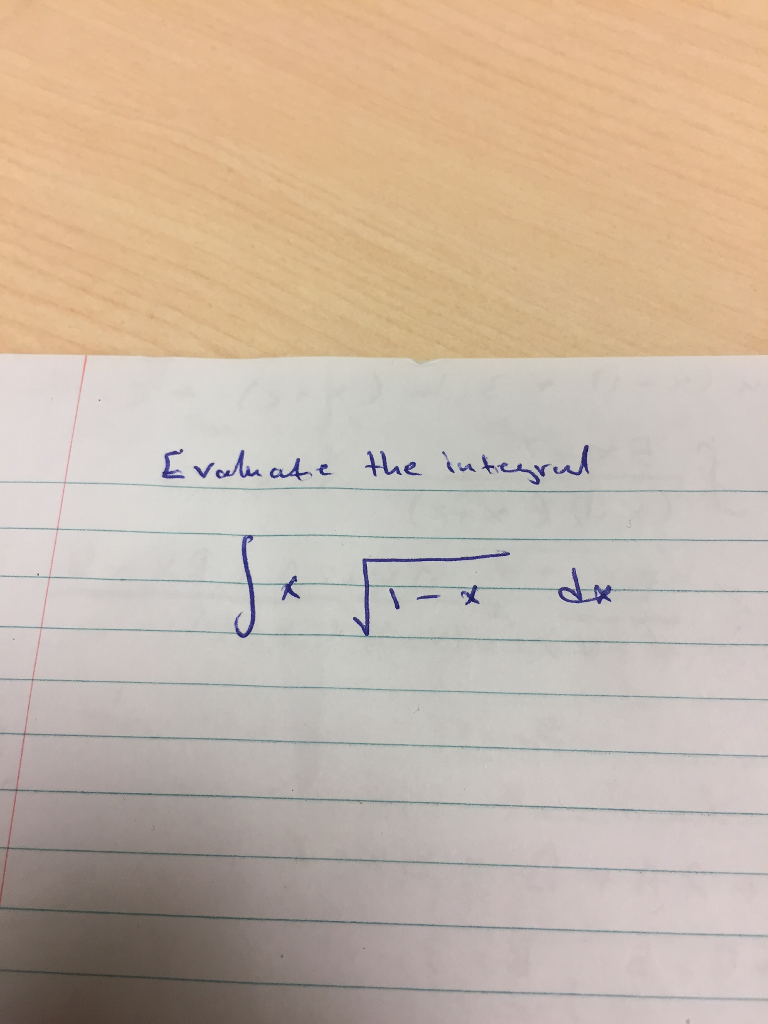 Evaluate the integral
∫ x √(1 - x) dx